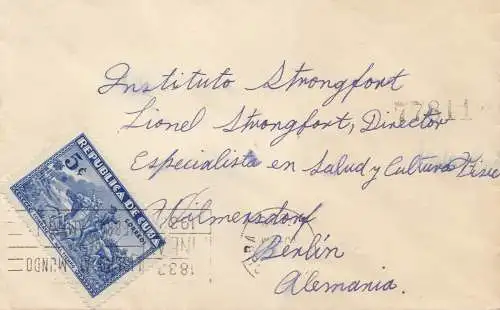 Instituto Strongfort
77811
Lionel Strongfort, Director
Especialista en Salud y Cultura
Wilmersdorf
Berlin
Alemania.
5¢
REPUBLICA DE CUBA
CORREOS
MUNDO